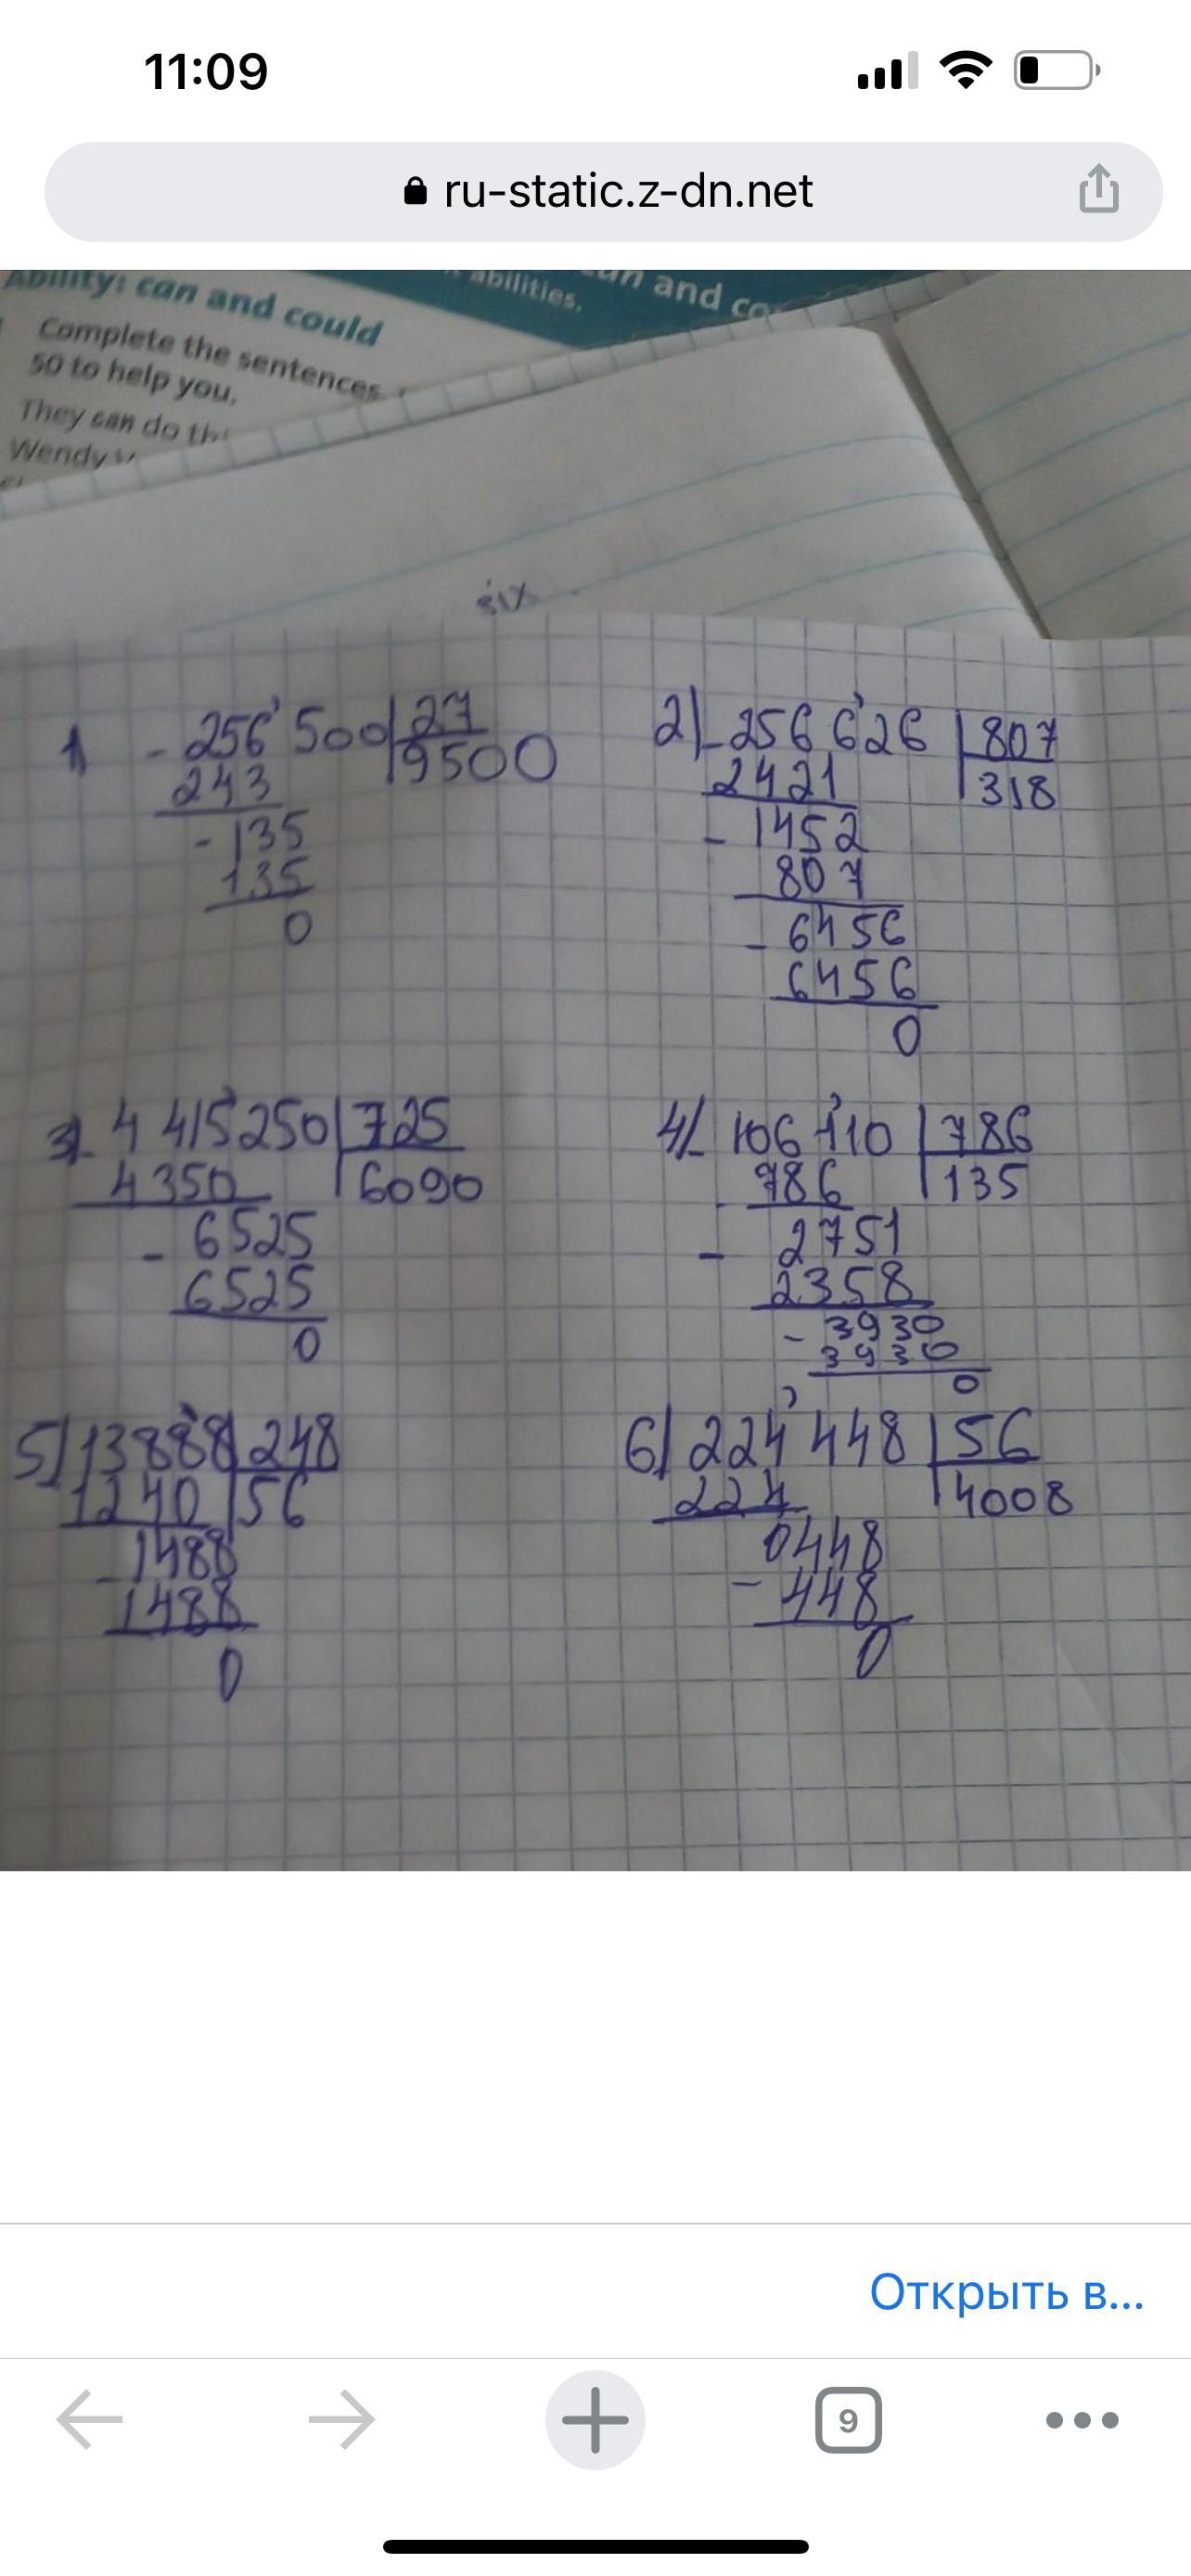 11:09
ru-static.z-dn.net
Ability: can and could
abilities.
and
Complete the sentences
50 to help you.
They can do
Wendy
six
1 - 256'500 | 27
243 | 9500
- 135
135
0
2) - 256 6'26 | 807
2421 | 318
- 1452
807
- 6456
6456
0
3) - 4 415'250 | 725
4350 | 6090
- 6525
6525
0
4) - 106'110 | 786
786 | 135
- 2751
2358
- 3930
3930
0
5) 13888 | 248
1240 | 56
- 1488
1488
0
6) 224'448 | 56
224 | 4008
0448
- 448
0
Открыть в...
9